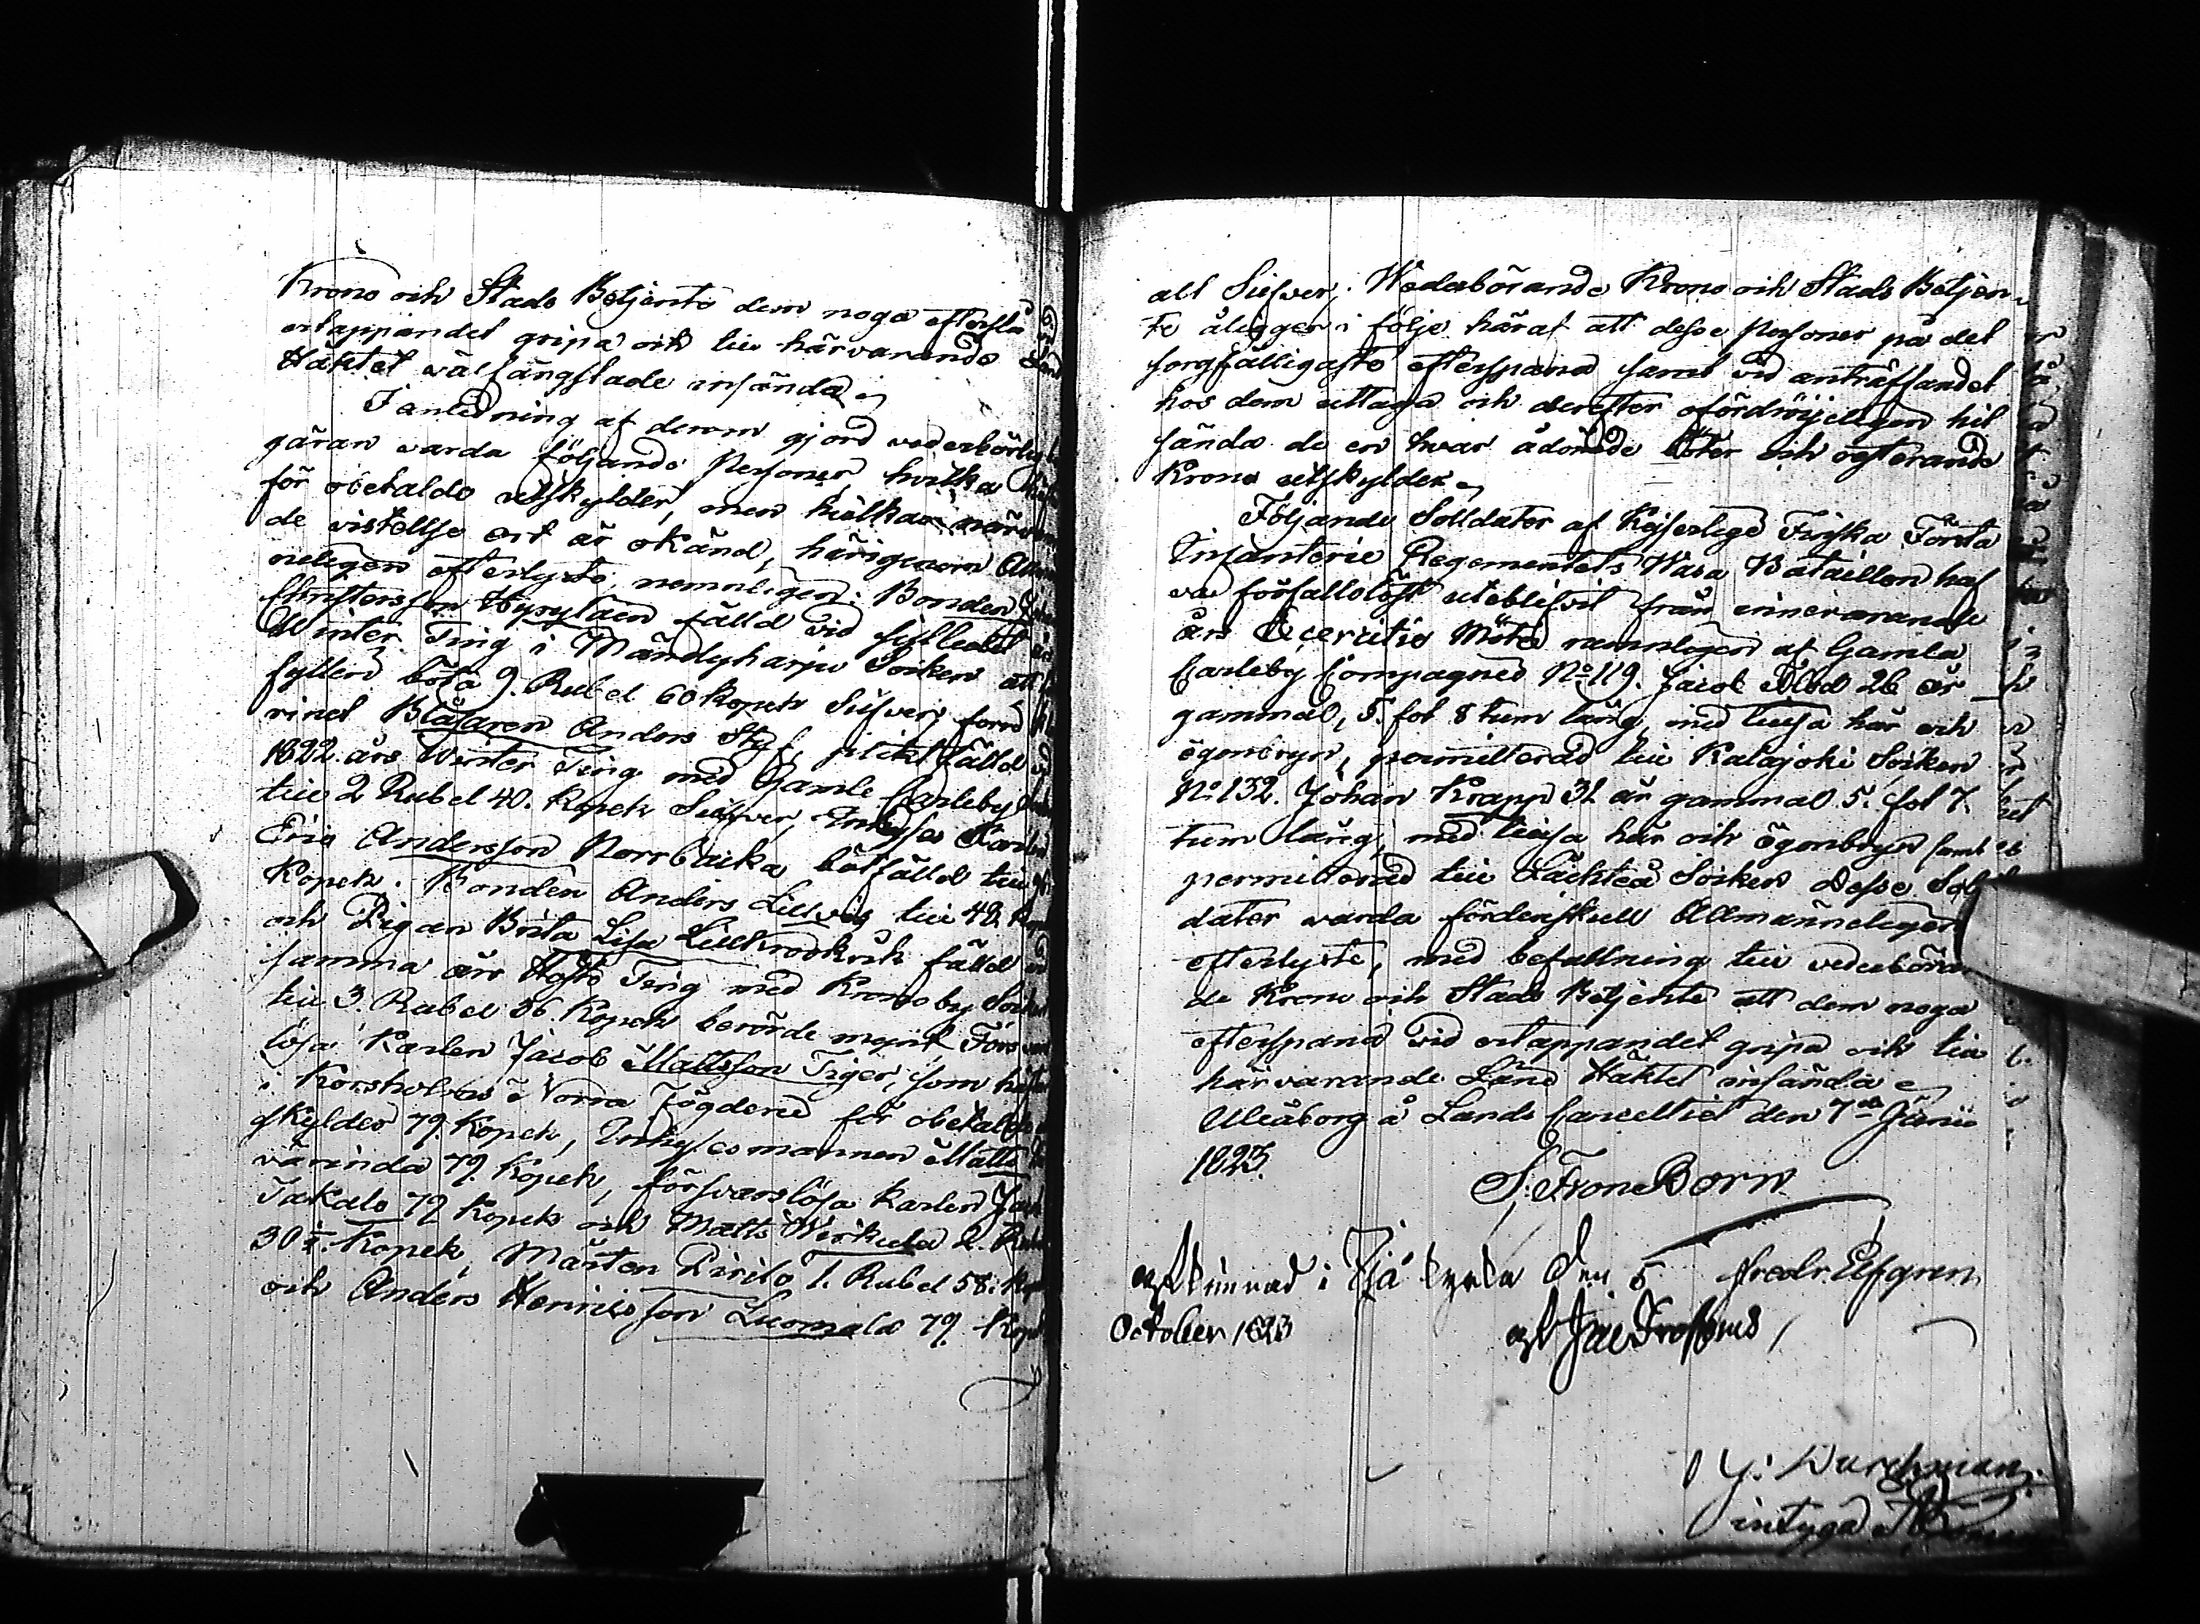 Krono och Stads Betjente dem noga efterslå
ertappandet gripa och till härvarande
Häktet väl fängslade insända
I anledning af derom gjord vederbörlig
gäran warda följande Personer, hvilka
för obetalde utskylder, men hvilkas närvaran
de vistelse ort är okänd, härigenom Allmän
neligen efterlyste, nemnligen: Bonden
Christersson Hyryläen fälld vid sistledit
Winter Ting i Mändyharju Socken att
fylleri böta 9. Rubel 60 Kopek Silfver; förd
rinet Blåsaren Anders Styf, plikt fälld
1822 års Winter Ting med Gamle Carleby
till 2 Rubel 40. Kopek Silfver, Inhyses Karlen
Eric Andersson Norrbacka bötfälld till
Kopek. Bonden Anders Lillvis till 48
och Pigan Brita Lisa fälld
samma års Höste Ting med Kronoby Socken
till 3. Rubel 36. Kopek berörde mynt Förs
lösa Karlen Jacob Mattsson Tiger, som häftar
i Korsholms Norra Fögderie för obetalde
skylder 79. Kopek, Inhysesmannen Matts
värinda 79. Kopek, försvarslösa karlen
Jakalo 79 Kopek och Matts Wirkula 2.
30½. Kopek, Mårten Pirilö 1. Rubel 58. Kop
och Anders Henricsson Luomala 79. Kop
all Silfver; Wederbörande Krono och Stads Betjen-
te ålegger i följe häraf att desse Personer på det
sorgfälligaste efterspana samt vid anträffandet
hos dem uttaga och derefter ofördröijeligen hit
sända de en hvar ådömde Böter och resterande
Krono utskylder
Följande Solldater af Kejserlige Finska Första
Infanterie Regementets Wasa Bataillon haf
va förfallolöst uteblifvit från innevarande
års Excercitie Möte nemnligen af Gamla
Carleby Compagnie No 119. Jacob Flod 26 år
gammal, 5. fot 8 tum lång, med ljusa hår och
ögonbryn, permitterad till Kalajoki Socken
No 132. Johan Krapp 31 år gammal 5. fot 7.
tum lång, med ljusa hår och ögonbryn samt
permitterad till Låchteå Socken Desse Sol
dater warda fördenskull Allmänneligen
efterlyste, med befallning till vederböran
de Krono och Stads Betjente att dem noga
efterspana vid ertappandet gripa och till
härvarande Läns Häktet insända
Uleåborg å Lands Cancelliet den 7de Junii
1823.
S. F. von Born
Fredr. Elfgren
upkunnad i kyrka den 5
October 1823
af Jac
intyga